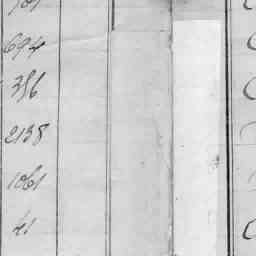 694
386
2138
1061
41